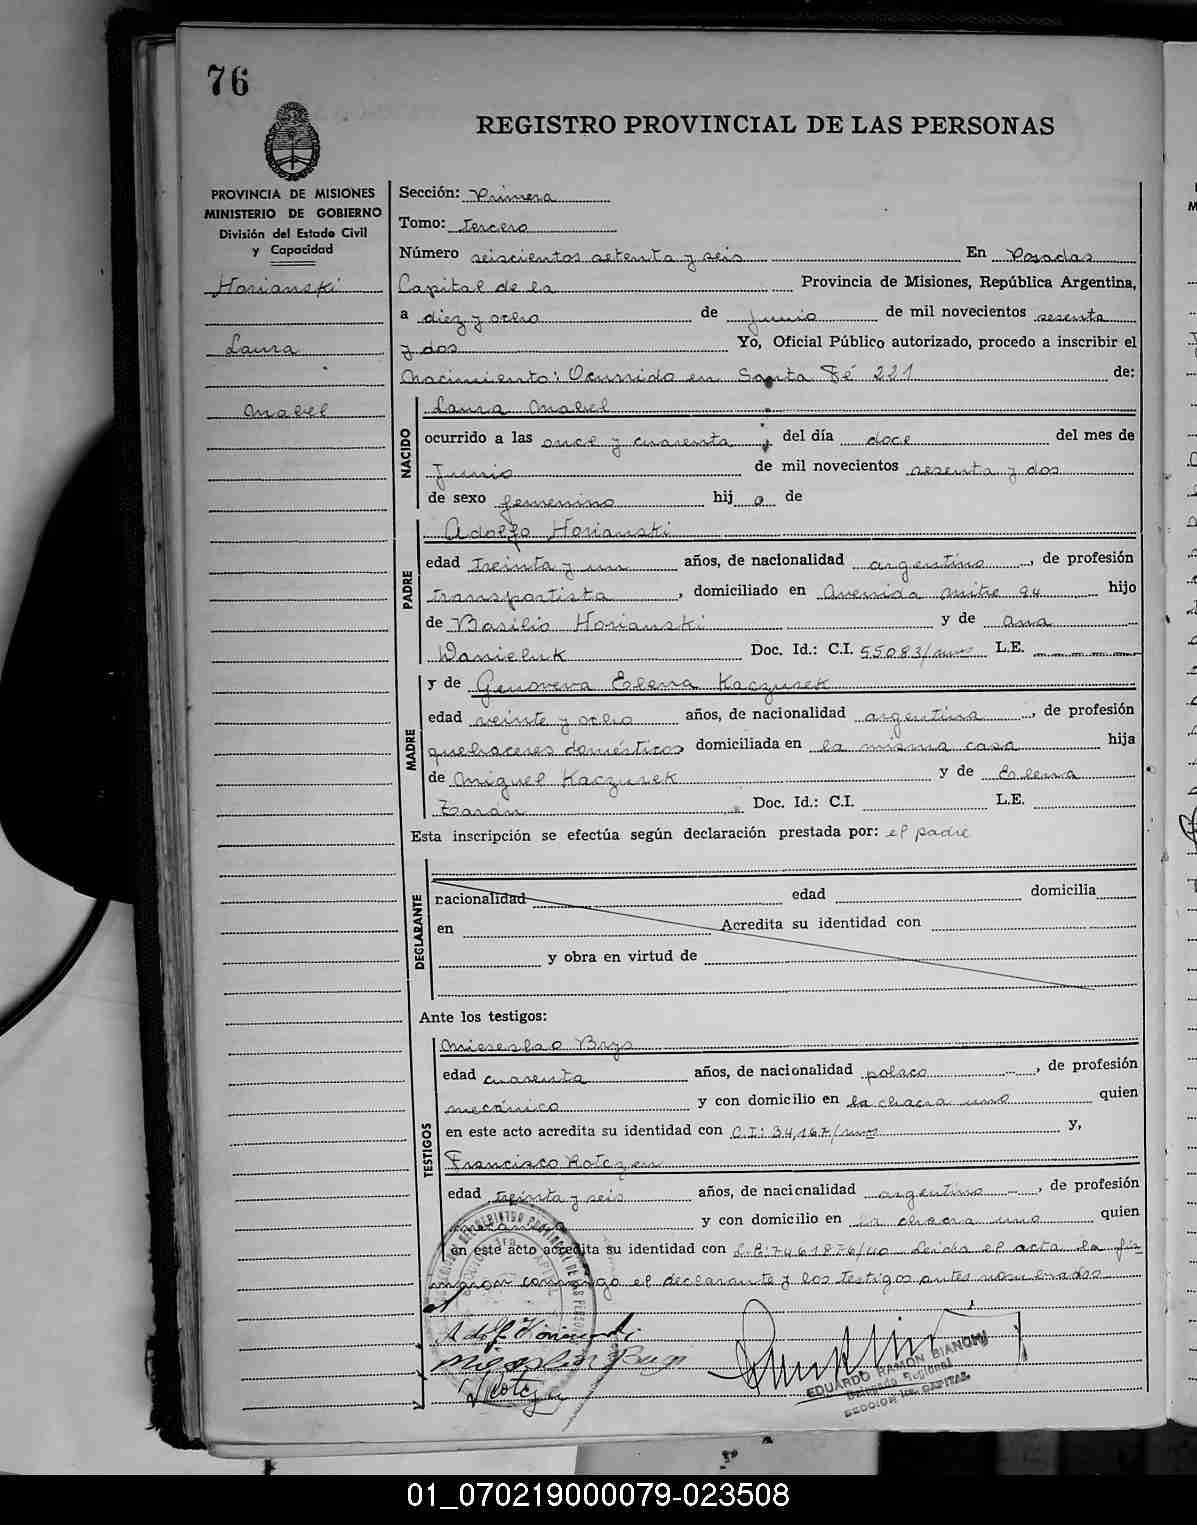 76
REGISTRO PROVINCIAL DE LAS PERSONAS
PROVINCIA DE MISIONES
MINISTERIO DE GOBIERNO
División del Estado Civil
y Capacidad
Horianski
Laura
Mabel
Sección: Primera
Tomo: tercero
Número seiscientos setenta y seis En Posadas
Capital de la Provincia de Misiones, República Argentina,
a diez y ocho de junio de mil novecientos sesenta
y dos Yo, Oficial Público autorizado, procedo a inscribir el
Nacimiento: Ocurrido en Santa Fé 221 de:
NACIDO
Laura Mabel
ocurrido a las once y cuarenta del día doce del mes de
Junio de mil novecientos sesenta y dos
de sexo femenino hij a de
PADRE
Adolfo Horianski
edad treinta y un años, de nacionalidad argentino, de profesión
transportista, domiciliado en Avenida Mitre 94 hijo
de Basilio Horianski y de Ana
Danieluk Doc. Id.: C.I. 55083/mnes L.E.
MADRE
y de Genoveva Elena Kaczurek
edad veinte y ocho años, de nacionalidad argentina, de profesión
quehaceres domésticos domiciliada en la misma casa hija
de Miguel Kaczurek y de Elena
Zarán Doc. Id.: C.I. L.E.
Esta inscripción se efectúa según declaración prestada por: el padre
DECLARANTE
nacionalidad edad domicilia
en Acredita su identidad con
y obra en virtud de
Ante los testigos:
TESTIGOS
Mieseslao Brys
edad cuarenta años, de nacionalidad polaco, de profesión
mecánico y con domicilio en la chacra uno quien
en este acto acredita su identidad con C.I: 34,167/mnes y,
Francisco Kotczen
edad treinta y seis años, de nacionalidad argentino, de profesión
y con domicilio en la chacra uno quien
en este acto acredita su identidad con L.E: 7461876/40 Leida el acta la fir
maron conmigo el declarante y los testigos antes nombrados
EDUARDO RAMON BIANCHI
Delegado Regional
SECCION 1ra. CAPITAL
01_070219000079-023508